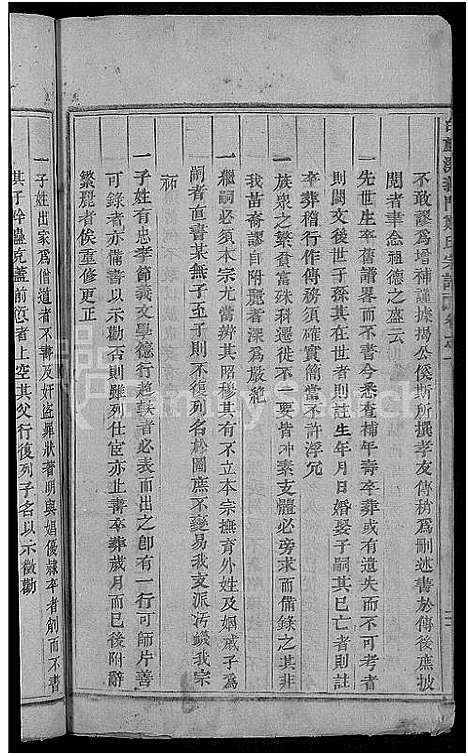 不敢謬爲增神謹據揭公傒斯所撰孝友傳稍爲刪述書於傳後庶披
閱者聿念祖德之盛云
一先世生卒舊譜有不書今悉查補年壽卒葬或有遺失而不可考者
則闕文後世子孫其在世者則註生年月日婚娶子嗣其已亡者則註
卒葬稽行作傳務須確實簡當不許浮冗
一族衆之繁貧富殊科遷徙不一要皆冲素支體必旁求而備錄之其非
我苗裔謬自附麗者深爲嚴寵
一繼嗣必須本宗尤當辨其昭穆其有不立本宗撫育外姓及姻戚子爲
嗣者直書某無子立子則不復列名於圖庶不變易我支派汚衊我宗
祏
一子姓有忠孝節義文學德行超軼者必表而出之卽有一行可師片善
可錄者亦備書以示勸否則雖列仕宦亦止書卒葬歲月而已後附辭
繁麗者俟重修更正
一子姓出家爲僧道者不書及奸盜罪狀著明與娼優隸卒者削而不書
其子幹蠱克蓋前愆者上空其父行復列子名以示徵勸
FamilySearch